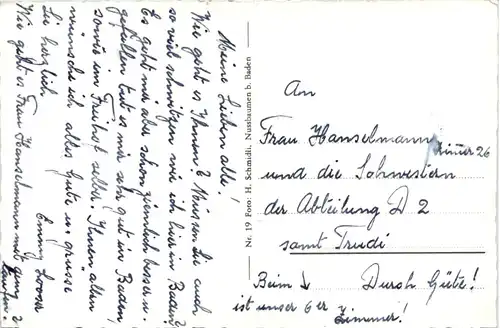 Meine Lieben alle!
Wie geht es Ihnen? Müssen Sie auch
so viel schwitzen wie ich hier in Baden?
Es geht mir aber schon ziemlich besser u.
gefallen tut es mir sehr gut in Baden,
sowie im Freihof selber. Ihnen allen
wünsche ich alles Gute u. grüsse
Sie herzlich
Emmy
Wie geht es Frau Hanselmann mit
Laufen?
Nr. 19 Foto: H. Schmidli, Nussbaumen b. Baden
An
Frau Hanselmann Zimmer 26
und die Schwestern
der Abteilung D 2
samt Trudi
Beim ↓ Durch Güte!
ist unser 6er Zimmer!